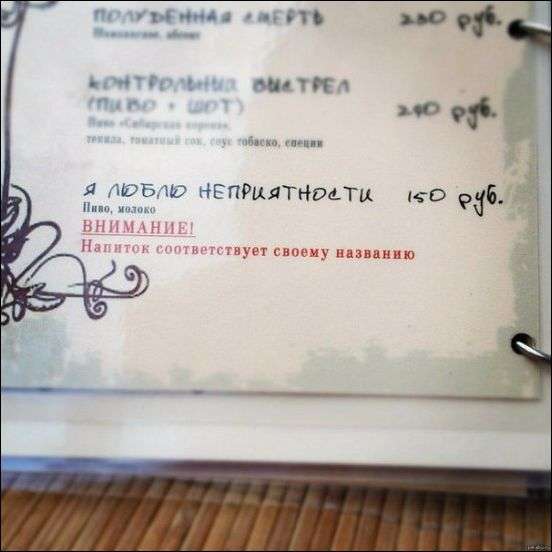 ПОЛУДЕННАЯ СМЕРТЬ 230 руб.
Шампанское, абсент
КОНТРОЛЬНЫЙ ВЫСТРЕЛ
(ПИВО + ШОТ) 290 руб.
Пиво «Сибирская корона»,
текила, томатный сок, соус тобаско, специи
Я ЛЮБЛЮ НЕПРИЯТНОСТИ 150 руб.
Пиво, молоко
ВНИМАНИЕ!
Напиток соответствует своему названию